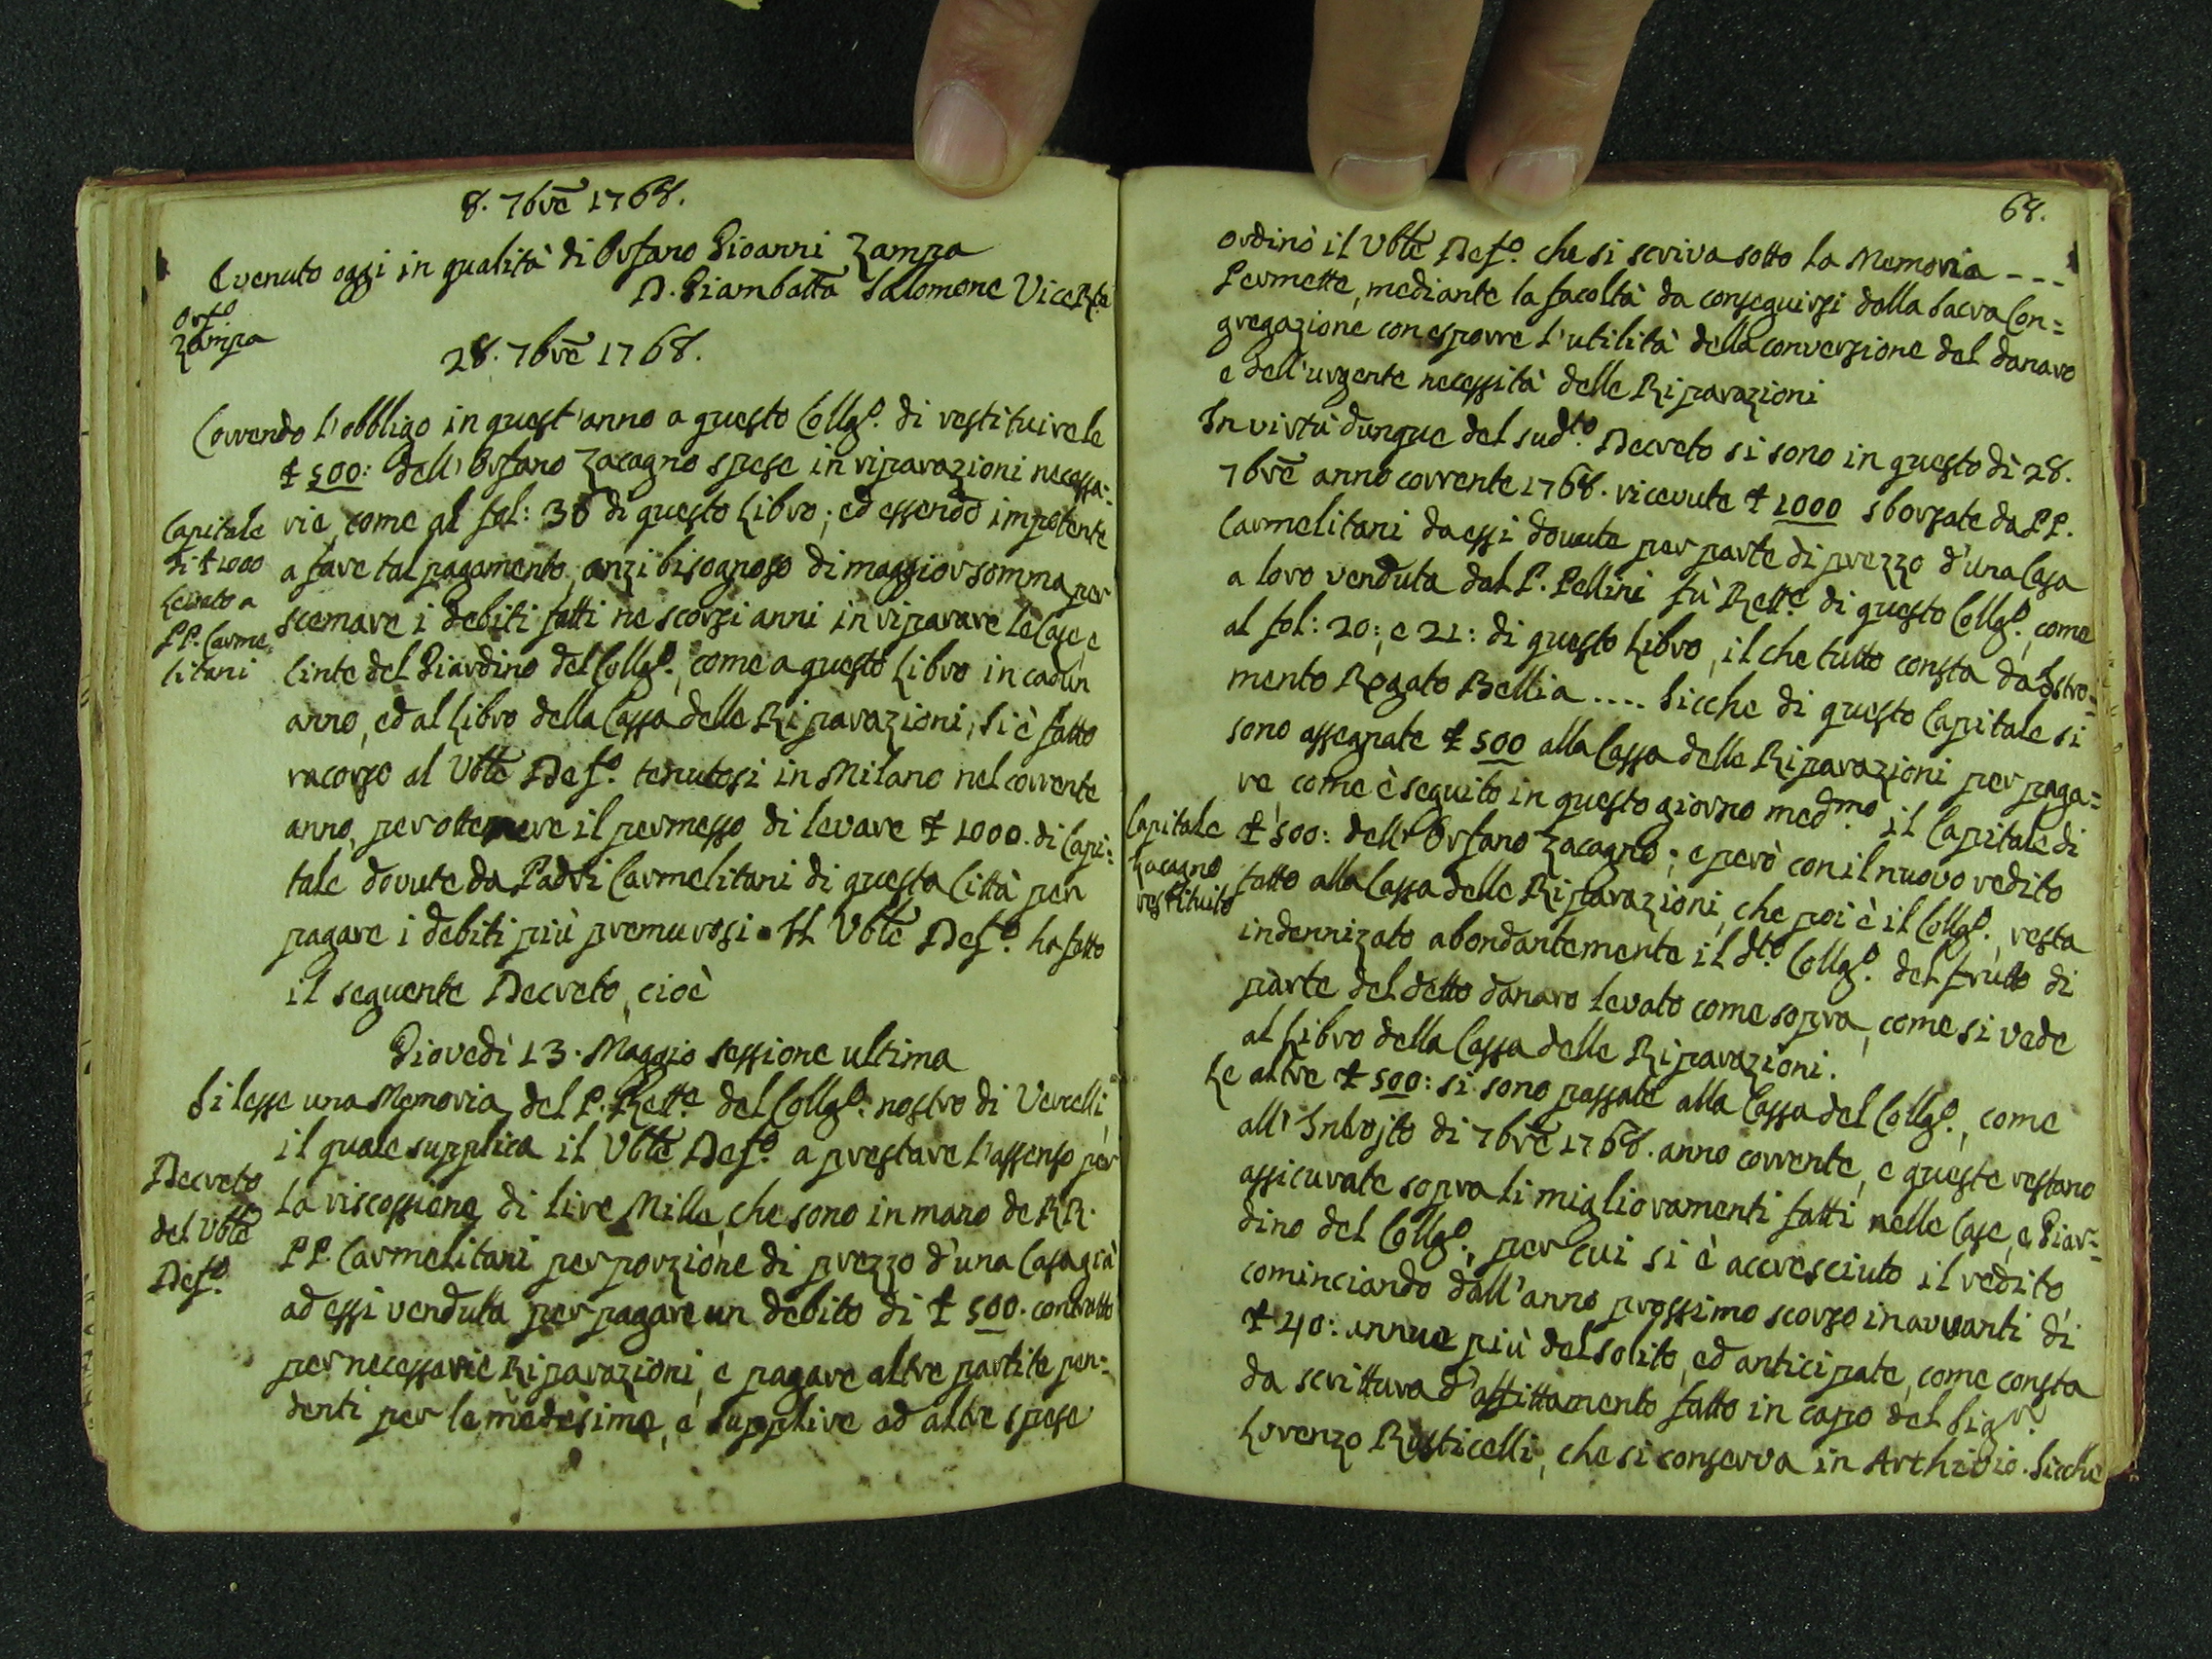 8. 7bre 1768.
È venuto oggi in qualità di Orfano Gioanni Zampa
D. Giambatta Salomone ViceRe
Orfo
Zampa
28. 7bre 1768.
Correndo l'obbligo in quest'anno a questo Collgo. di restituire le
₤ 500: dell'Orfano Zacagno spese in riparazioni necessa:
rie, come al fol: 36 di questo Libro; ed essendo impotente
a fare tal pagamento, anzi bisognoso di maggior somma per
scemare i debiti fatti ne scorsi anni in riparare le Case, e
Cinte del Giardino del Collgo., come a questo Libro in cadun
anno, ed al Libro della Cassa delle Riparazioni, si è fatto
racorso al Vble Defo. tenutosi in Milano nel corrente
anno, per ottenere il permesso di levare ₤ 1000. di Capi:
tale dovute da Padri Carmelitani di questa Città per
pagare i debiti più premurosi. Il Vble Defo. ha fatto
il seguente Decreto, cioè
Capitale
di ₤ 1000
Levato a
PP. Carme:
litani
Giovedì 13. Maggio sessione ultima
Si lesse una Memoria del P. Rette del Collgo. nostro di Vercelli,
il quale supplica il Vble Defo. a prestare l'assenso per
la riscossione di lire Mille, che sono in mano de RR.
PP. Carmelitani per porzione di prezzo d'una Casa già
ad essi venduta per pagare un debito di ₤ 500. contratto
per necessarie Riparazioni, e pagare altre partite pen:
denti per le medesime, e supplire ad altre spese
Decreto
del Vble
Defo.
68.
ordinò il Vble Defo. che si scriva sotto la Memoria - - -
Permette, mediante la facoltà da conseguirsi dalla Sacra Con:
gregazione con esporre l'utilità della conversione del danaro
e dell'urgente necessità delle Riparazioni
In virtù dunque del sudto. Decreto si sono in questo dì 28.
7bre anno corrente 1768. ricevute ₤ 1000 sborsate da PP.
Carmelitani da essi dovute per parte di prezzo d'una Casa
a loro venduta dal P. Pellini fù Rette di questo Collgo., come
al fol: 20; e 21: di questo Libro, il che tutto consta da Istro:
mento Rogato Bellia .... Sicche di questo Capitale si
sono assegnate ₤ 500 alla Cassa delle Riparazioni per paga:
re come è seguito in questo giorno medmo. il Capitale di
₤ 500: dell'Orfano Zacagno; e però con il nuovo redito
fatto alla Cassa delle Riparazioni, che poi è il Collgo., resta
indennizato abondantemente il dto. Collgo. del frutto di
parte del detto danaro levato come sopra, come si vede
al Libro della Cassa delle Riparazioni.
Capitale
Zacagno
restituito
Le altre ₤ 500: si sono passate alla Cassa del Collgo., come
all'Introjto di 7bre 1768. anno corrente, e queste restano
assicurate sopra li miglioramenti fatti nelle Case, e Giar:
dino del Collgo., per cui si è accresciuto il redito
cominciando dall'anno prossimo scorso in avvanti di
₤ 40: annue più del solito, ed anticipate, come consta
da scrittura d'affittamento fatto in capo del Sigr.
Lorenzo Rusticelli, che si conserva in Archivio. Sicche